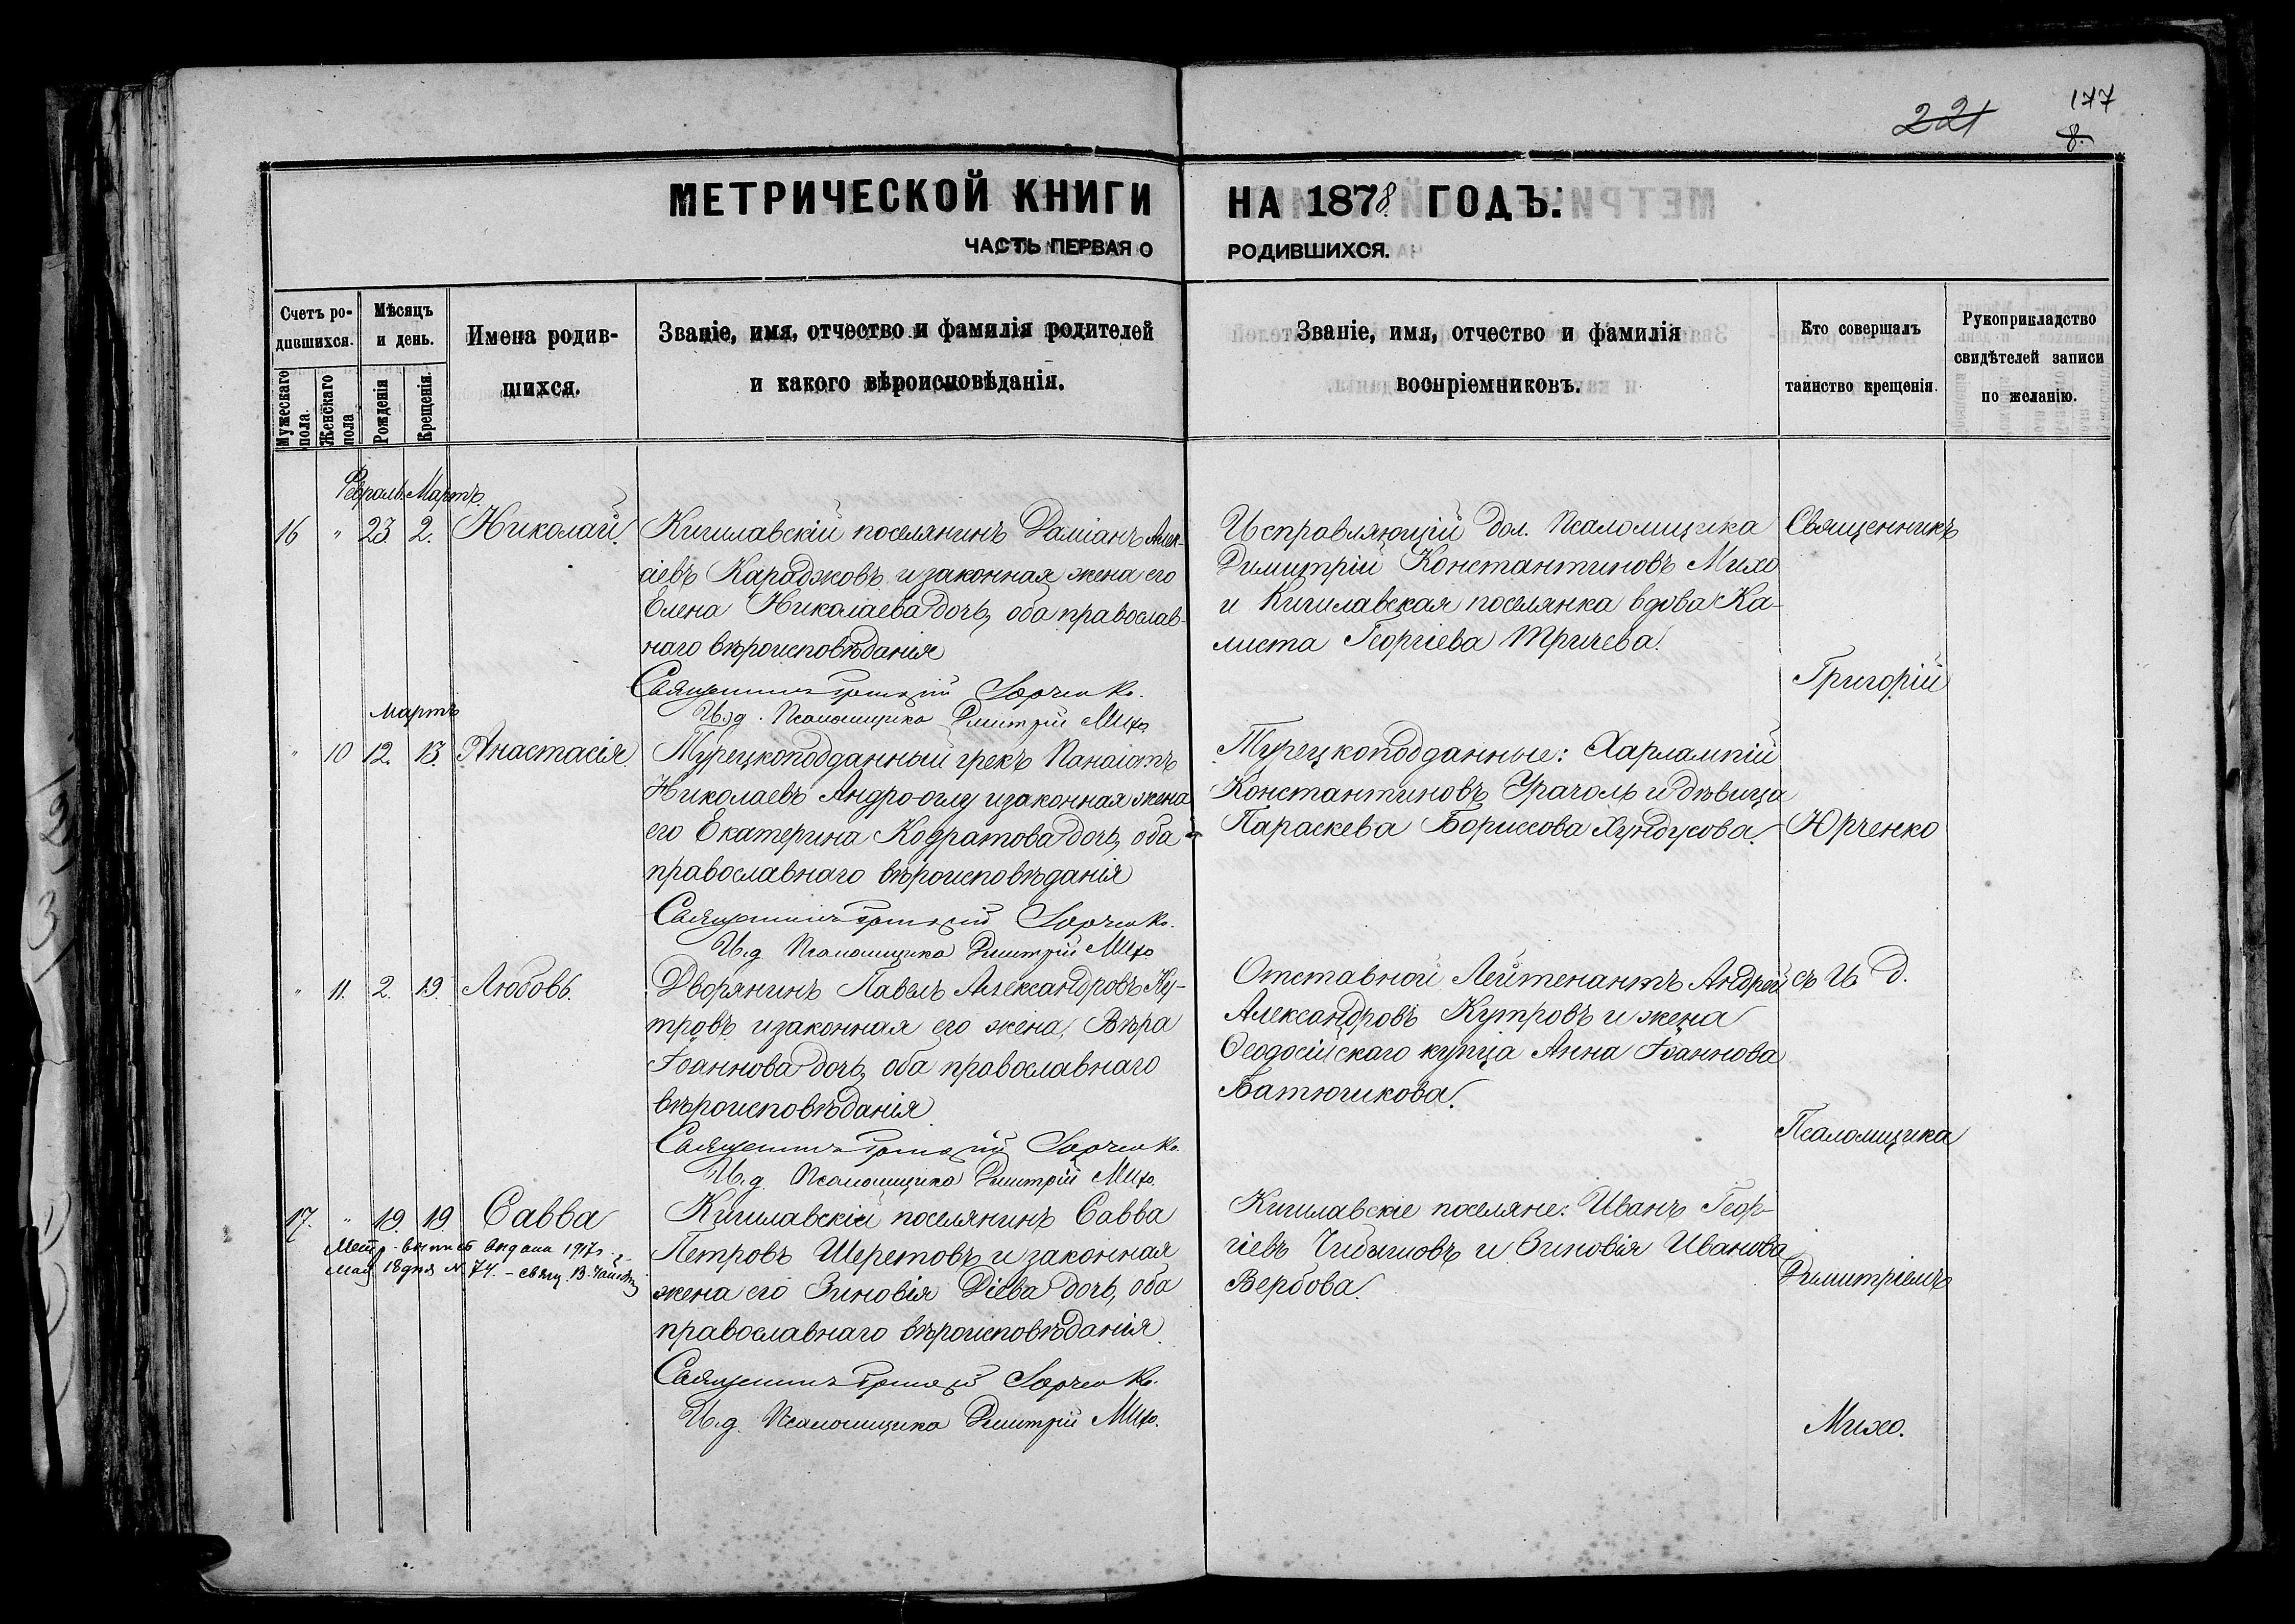 221
177
8.
МЕТРИЧЕСКОЙ КНИГИ НА 1878. ГОДЪ:
ЧАСТЬ ПЕРВАЯ О РОДИВШИХСЯ.
Счетъ ро-
дившихся.
Мужескаго пола.
Женскаго пола
Мѣсяцъ
и день.
Рожденія
Крещенія.
Имена родив-
шихся.
Званіе, имя, отчество и фамилія родителей
и какого вѣроисповѣданія.
Званіе, имя, отчество и фамилія
воспріемниковъ.
Кто совершалъ
таинство крещенія.
Рукоприкладство
свидѣтелей записи
по желанію.
Февраль. Мартъ.
16 " 23. 2. Николай.
Кишлавскій поселянинъ Даміанъ Алек-
сіевъ Караджовъ и законная жена его
Елена Николаева дочь, оба православ-
наго вѣроисповѣданія
Священникъ Григорій Юрченко.
И. д. Псаломщика Димитрій Михо
Исправляющій дол. Псаломщика
Димитрій Константиновъ Михо
и Кишлавская поселянка вдова Ка-
листа Георгіева Тричева.
Священникъ
Григорій
Мартъ
" 10 12. 13. Анастасія.
Турецкоподданный грекъ Панаіотъ
Николаевъ Андро-оглу и законная жена
его Екатерина Кодратова дочь, оба
православнаго вѣроисповѣданія
Священникъ Григорій Юрченко.
И. д Псаломщика Димитрій Михо
Турецкоподданные: Харлампій
Константиновъ Урачоль и дѣвица
Параскева Борисова Хундусова.
Юрченко
" 11. 2. 19. Любовь.
Дворянинъ Павелъ Александровъ Ку-
тровъ и законная его жена, Вѣра
Іоаннова дочь, оба православнаго
вѣроисповѣданія
Священникъ Григорій Юрченко.
И. д. Псаломщика Димитрій Михо.
Отставной Лейтенантъ Андрей
Александровъ Кутровъ и жена
Ѳеодосійскаго купца Анна Іоаннова
Батюшкова.
съ И. д.
Псаломщика
17. " 19 19 Савва
Метр. выпись выдана 1917 г.
мая 18 дня № 74. – свящ. В.
Кишлавскій поселянинъ Савва
Петровъ Шеретовъ и законная
жена его Зиновія Діева дочь, оба
православнаго вѣроисповѣданія.
Священникъ Григорій Юрченко.
И. д. Псаломщика Димитрій Михо.
Кишлавскіе поселяне: Иванъ Геор-
гіевъ Чибишовъ и Зиновія Иванова
Вербова.
Димитріемъ
Михо.